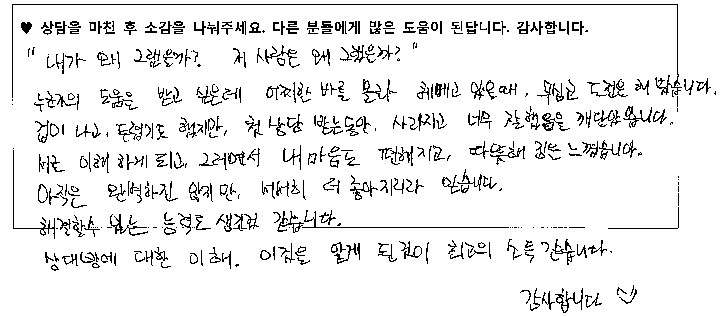 ♥ 상담을 마친 후 소감을 나눠주세요. 다른 분들에게 많은 도움이 된답니다. 감사합니다.
"내가 왜 그랬을까? 저 사람은 왜 그랬을까?"
누군가의 도움을 받고 싶은데 어찌할 바를 몰라 헤메고 있을때, 무심코 도전을 해 봤습니다.
겁이 나고, 두렵기도 했지만, 첫 상담 받는동안, 사라지고 너무 잘했음을 깨달았습니다.
서로 이해하게 되고, 그러면서 내 마음도 편해지고, 따뜻해 짐을 느꼈습니다.
아직은 완벽하진 않지만, 서서히 더 좋아지리라 믿습니다.
해결할수 있는 능력도 생긴것 같습니다.
상대방에 대한 이해. 이것을 알게 된것이 최고의 소득 같습니다.
감사합니다